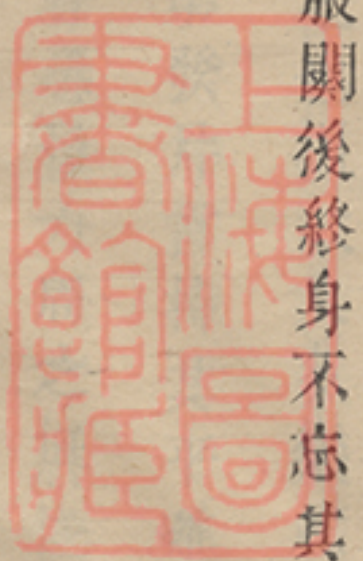 服闋後終身不忘其
上海圖
書館藏